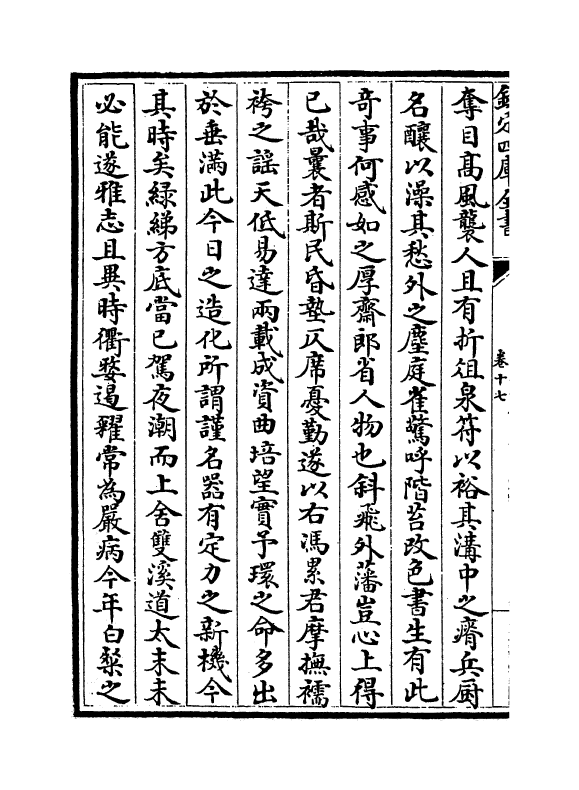 欽定四庫全書
卷十七
奪目髙風襲人且有折俎泉符以裕其溝中之瘠兵厨
名釀以澡其愁外之塵庭雀驚呼階苔改色書生有此
竒事何感如之厚齋郎省人物也斜飛外藩豈心上得
已哉曩者斯民昏墊仄席憂勤遂以右馮累君摩撫襦
袴之謡天低易達兩載成資曲培望實予環之命多出
於垂滿此今日之造化所謂謹名器有定力之新機今
其時矣緑綈方底當已駕夜潮而上舍雙溪道太末未
必能遂雅志且異時衢婺遏糴常為嚴病今年白粲之